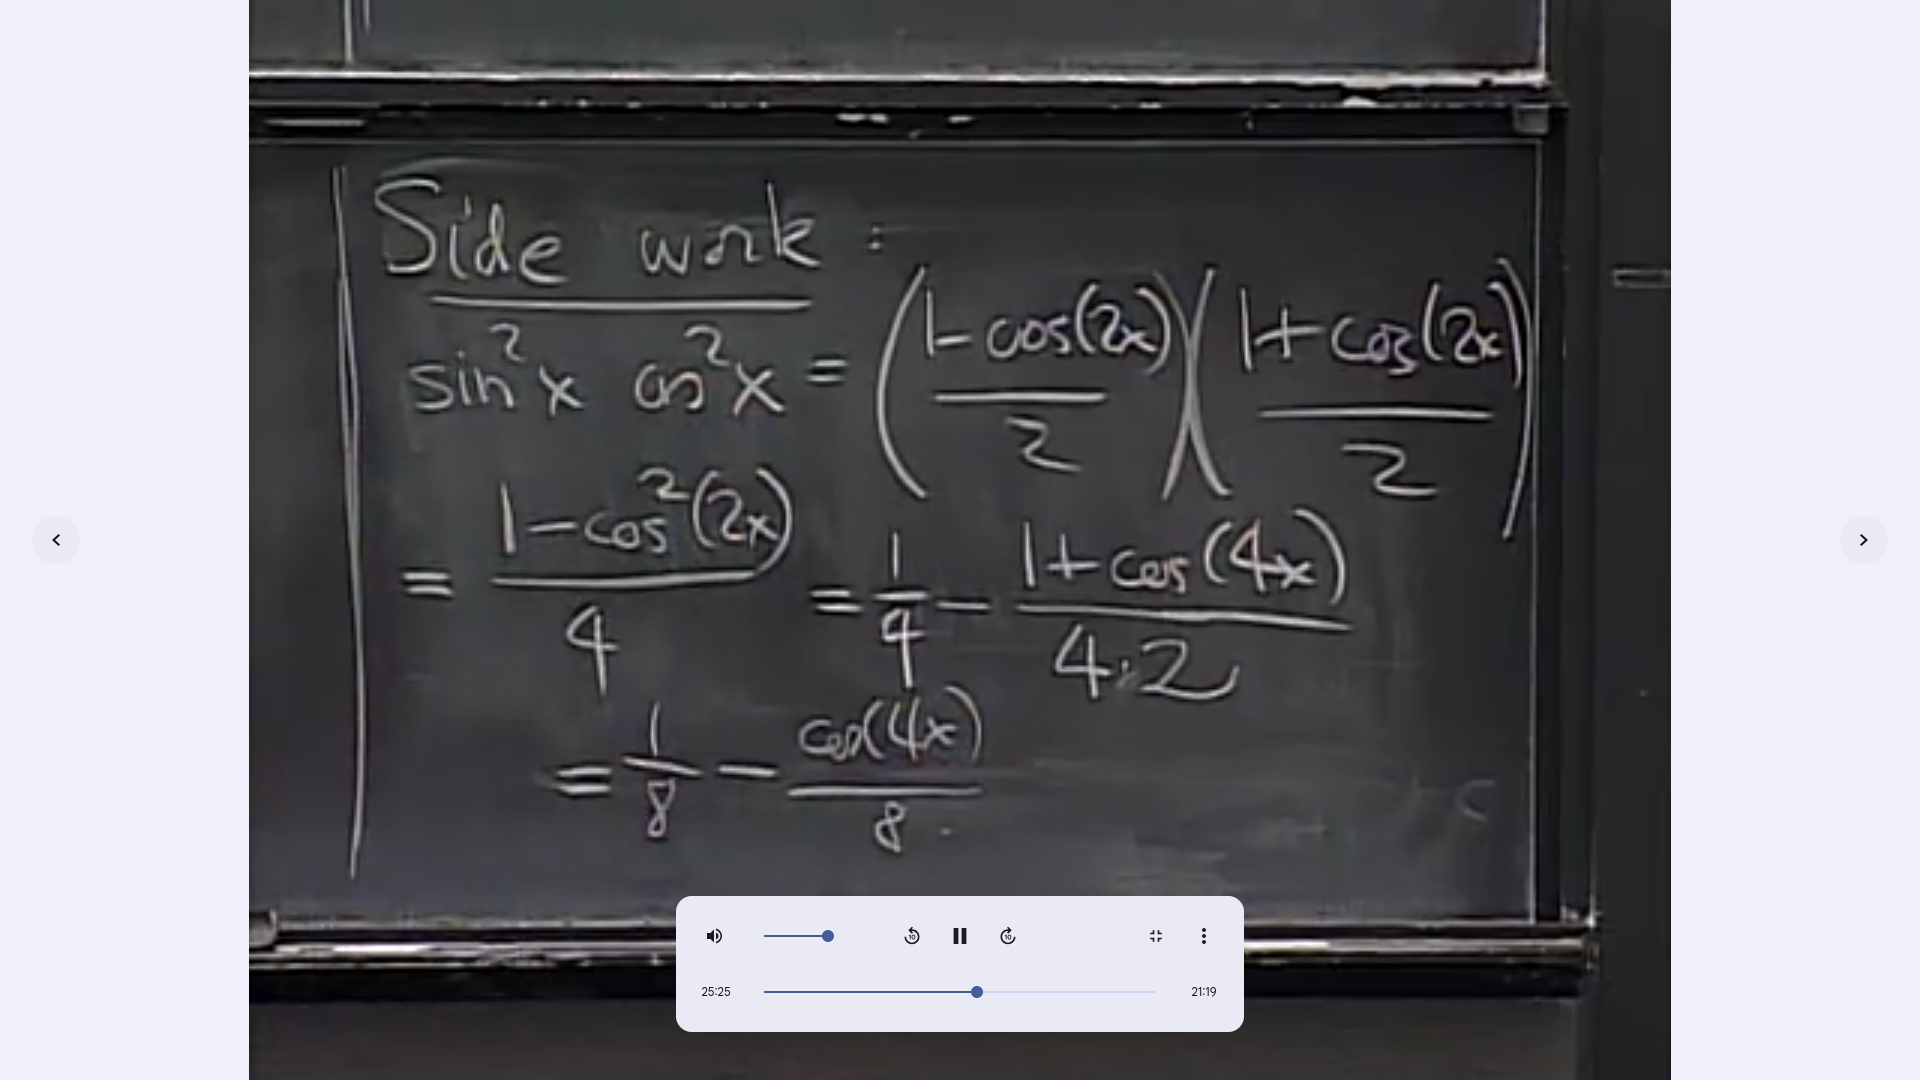 Side work :
sin²x cos²x = ((1 - cos(2x))/2)((1 + cos(2x))/2)
= (1 - cos²(2x))/4 = 1/4 - (1 + cos(4x))/(4·2)
= 1/8 - cos(4x)/8
10 10
25:25 21:19